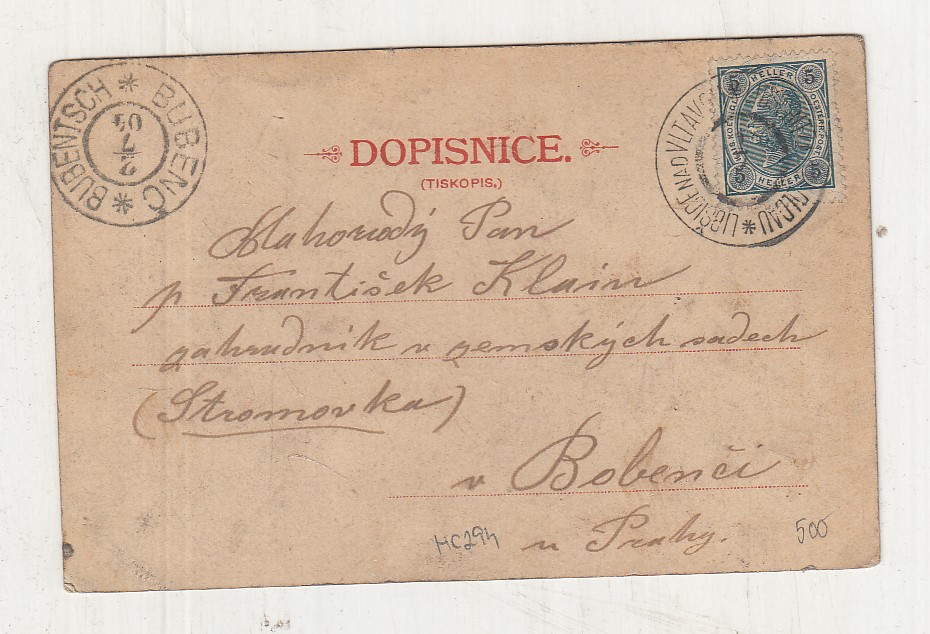 BUBENTSCH * BUBENČ *
2/7 03
5 HELLER 5
KAIS. KOENIGL. OESTERR. POST.
5 HELLER 5
LIBŠICE NAD VLTAVOU *
DOPISNICE.
(TISKOPIS.)
Blahorodý Pan
p František Klain
zahradník v zemských sadech
(Stromovka)
v Bobenči
u Prahy.
HC294
500